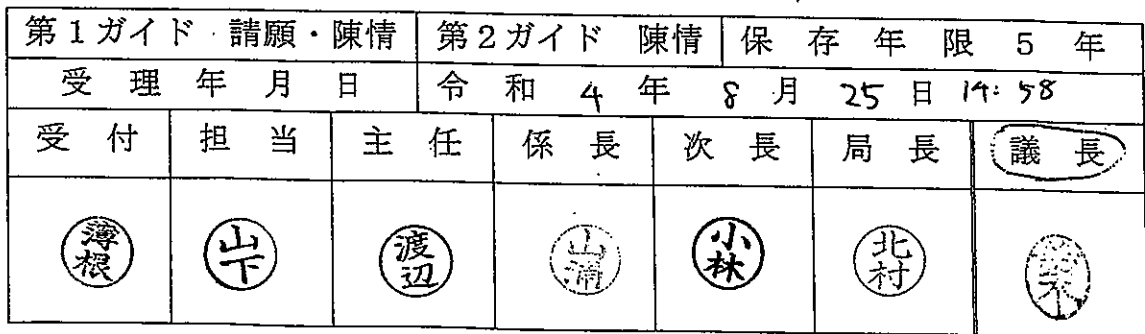 第1ガイド 請願・陳情 第2ガイド 陳情 保存年限 5年
受理年月日 令和 4年 8月 25日 14:58
受付 担当 主任 係長 次長 局長 議長
薄根 山下 渡辺 山浦 小林 北村